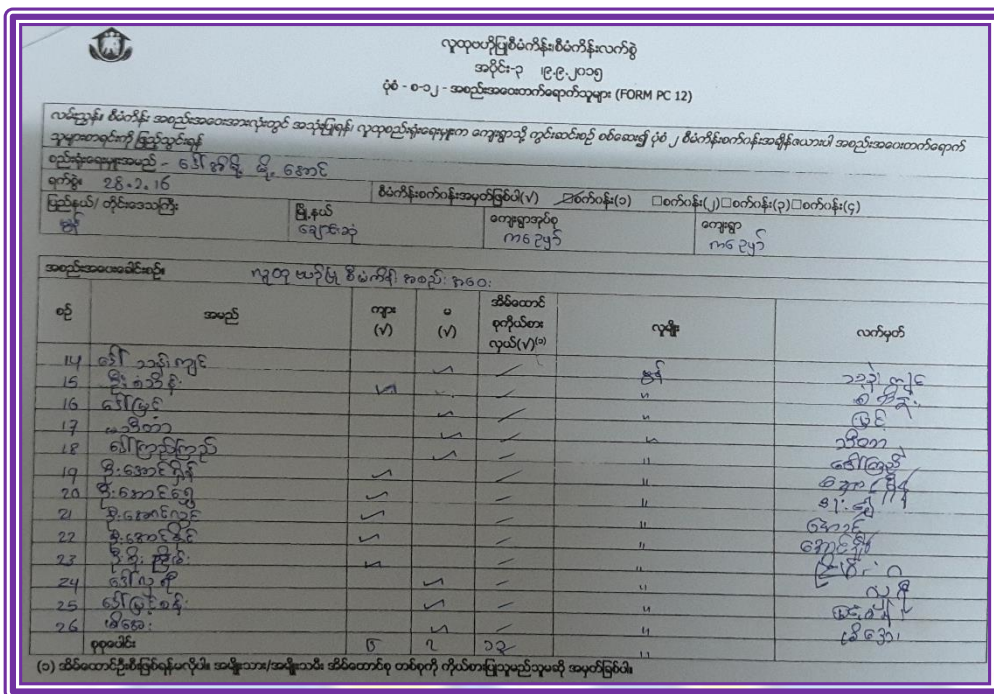 လူထုဗဟိုပြုစီမံကိန်းစီမံကိန်းလက်စွဲ
အပိုင်း-၃ ၊၉.၉.၂၀၁၅
ပုံစံ - စ-၁၂ - အစည်းအဝေးတက်ရောက်သူများ (FORM PC 12)
လမ်းညွှန်။ စီမံကိန်း အစည်းအဝေးအားလုံးတွင် အသုံးပြုရန်၊ လူထုစည်းရုံးရေးမှူးက ကျေးရွာသို့ ကွင်းဆင်းစဉ် စစ်ဆေး၍ ပုံစံ ၂ စီမံကိန်းစက်ဝန်းအချိန်ဇယားပါ အစည်းအဝေးတက်ရောက်
သူများစာရင်းကို ဖြည့်သွင်းရန်
စည်းရုံးရေးမှူးအမည် - ဒေါ်အိမို့မို့အောင်
ရက်စွဲ။ 28.2.16 စီမံကိန်းစက်ဝန်းအမှတ်ခြစ်ပါ(√) ☑စက်ဝန်း(၁) □စက်ဝန်း(၂)□စက်ဝန်း(၃)□စက်ဝန်း(၄)
ပြည်နယ်/ တိုင်းဒေသကြီး မြို့နယ် ကျေးရွာအုပ်စု ကျေးရွာ
မွန် ချောင်းဆုံ ကဥေမှာ် ကဥေမှာ်
အစည်းအဝေးခေါင်းစဉ်။ လူထုဗဟိုပြု စီမံကိန်း အစည်းအဝေး
စဉ် အမည် ကျား (√) မ (√) အိမ်ထောင်စုကိုယ်စားလှယ်(√)⁽ᵓ⁾ လူမျိုး လက်မှတ်
14 ဒေါ်သန်းကျင် √ / မွန် သန်းကျင်
15 √ / "
16 ဒေါ်မြင့် √ / " မြင့်
17 မသီတာ √ / " သီတာ
18 ဒေါ်ကြည်ကြည် √ / " ဒေါ်ကြည်
19 √ / "
20 ဦးအောင်ရွှေ √ / "
21 ဦးအောင်လွင် √ / " အောင်
22 ဦးအောင်နိုင် √ / "
23 √ / "
24 √ /
25 √ / "
26 √ / "
စုစုပေါင်း ၆ ၇ ၁၃
(၁) အိမ်ထောင်ဦးစီးဖြစ်ရန်မလိုပါ။ အမျိုးသား/အမျိုးသမီး အိမ်ထောင်စု တစ်စုကို ကိုယ်စားပြုသူမည်သူမဆို အမှတ်ခြစ်ပါ။